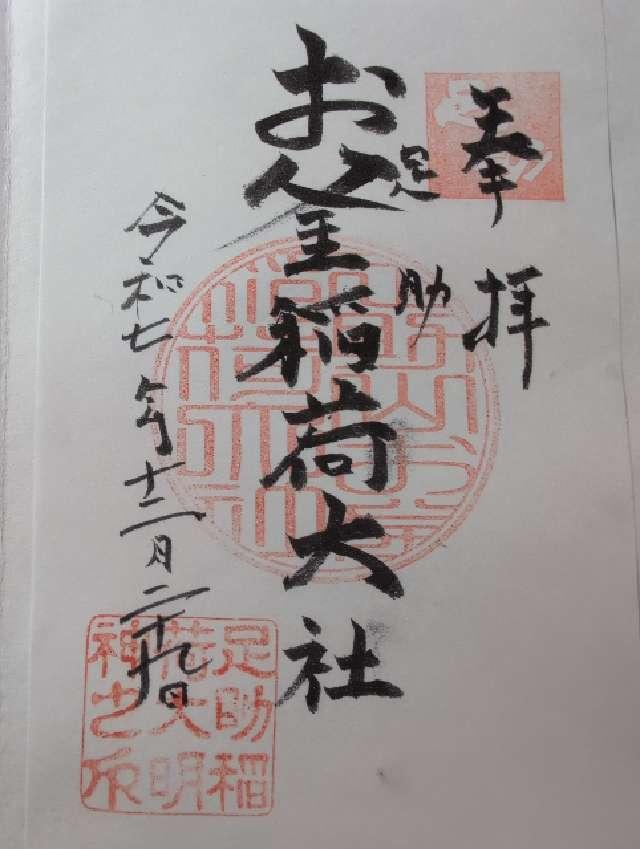 奉拝
足助
お釜稲荷大社
令和七年十二月二十九日
足助稲
荷大明
神之印